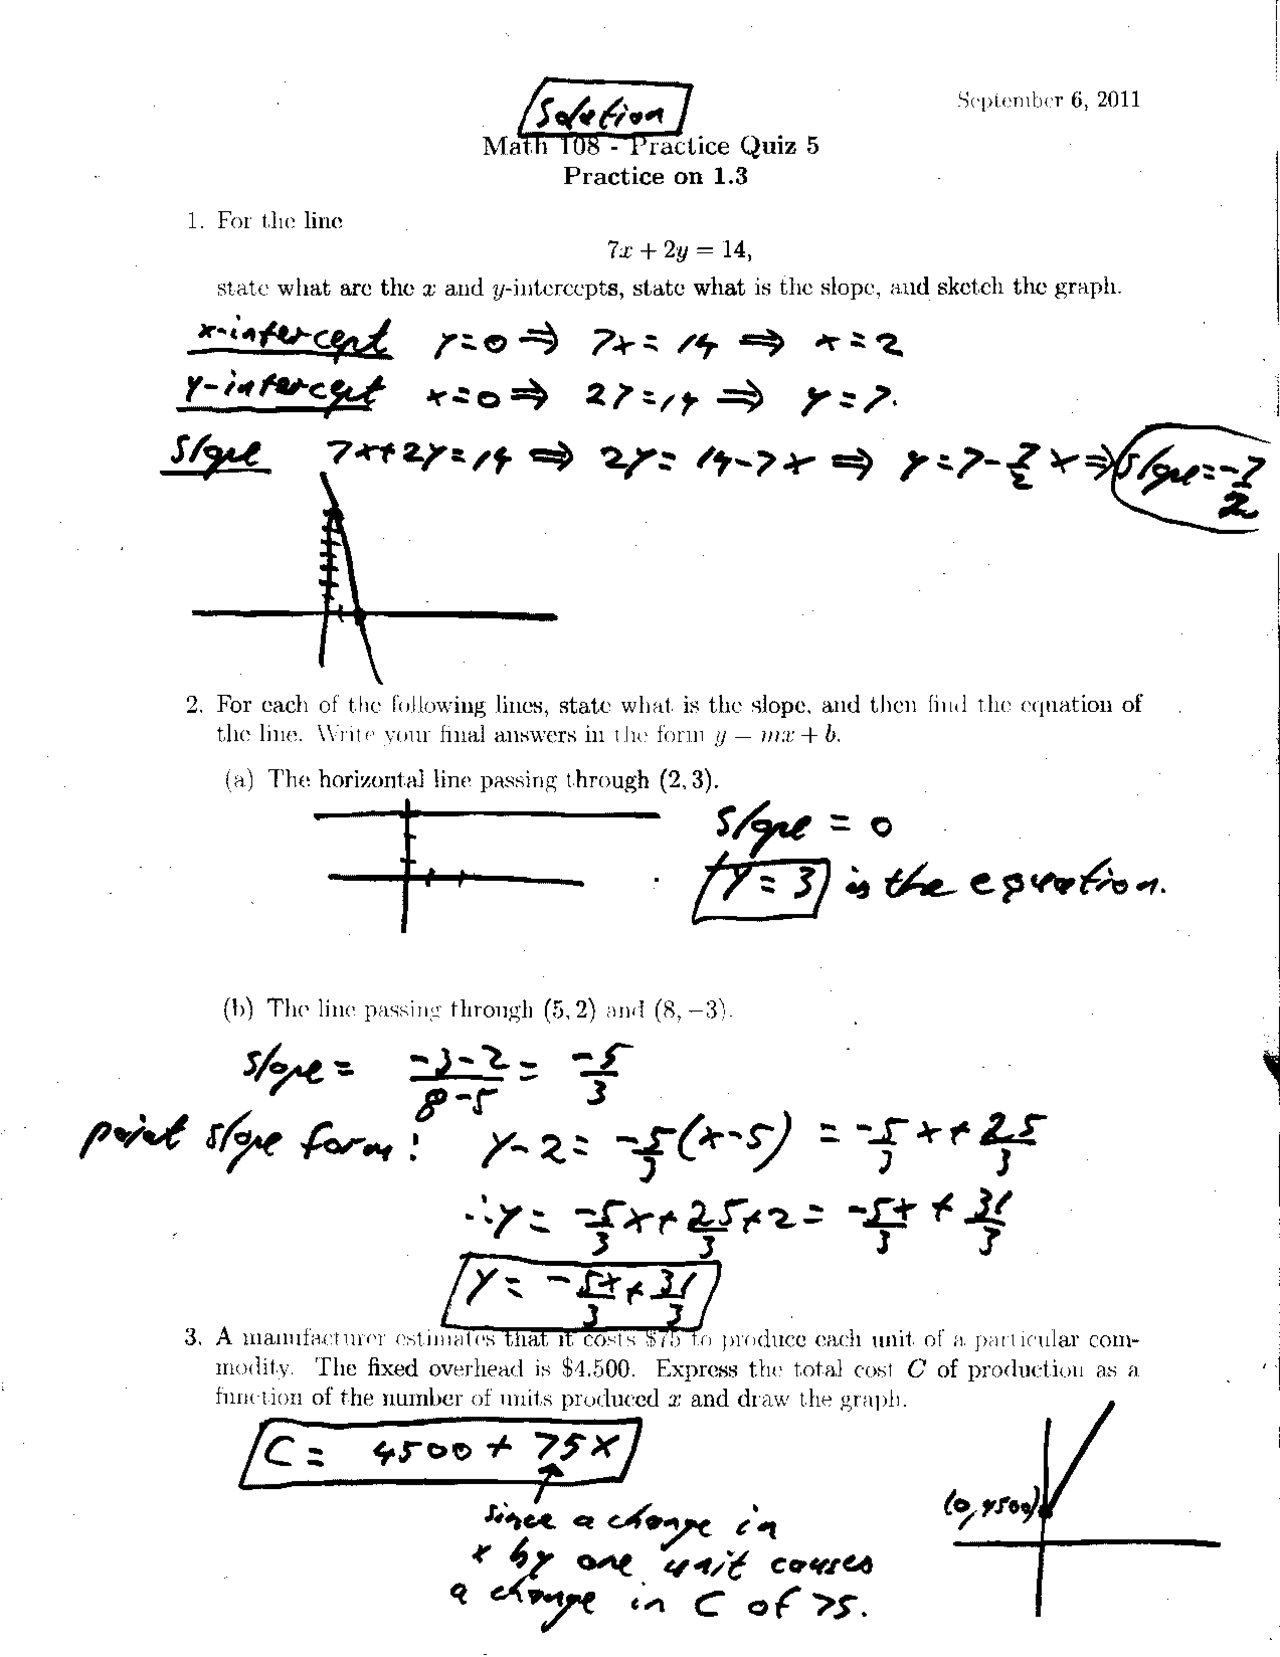 September 6, 2011
Solution
Math 108 - Practice Quiz 5
Practice on 1.3
1. For the line
7x + 2y = 14,
state what are the x and y-intercepts, state what is the slope, and sketch the graph.
x-intercept y=0 ⇒ 7x = 14 ⇒ x = 2
y-intercept x=0 ⇒ 2y=14 ⇒ y=7.
Slope 7x+2y=14 ⇒ 2y= 14-7x ⇒ y=7-7/2 x ⇒ slope=-7/2
2. For each of the following lines, state what is the slope, and then find the equation of
the line. Write your final answers in the form y = mx + b.
(a) The horizontal line passing through (2, 3).
slope = 0
y = 3 is the equation.
(b) The line passing through (5, 2) and (8, −3).
slope = (-3-2)/(8-5) = -5/3
point slope form: y-2 = -5/3 (x-5) = -5/3 x + 25/3
∴ y = -5/3 x + 25/3 + 2 = -5x/3 + 31/3
y = -5x/3 + 31/3
3. A manufacturer estimates that it costs $75 to produce each unit of a particular com-
modity. The fixed overhead is $4,500. Express the total cost C of production as a
function of the number of units produced x and draw the graph.
C = 4500 + 75x
(0,4500)
since a change in
x by one unit causes
a change in C of 75.